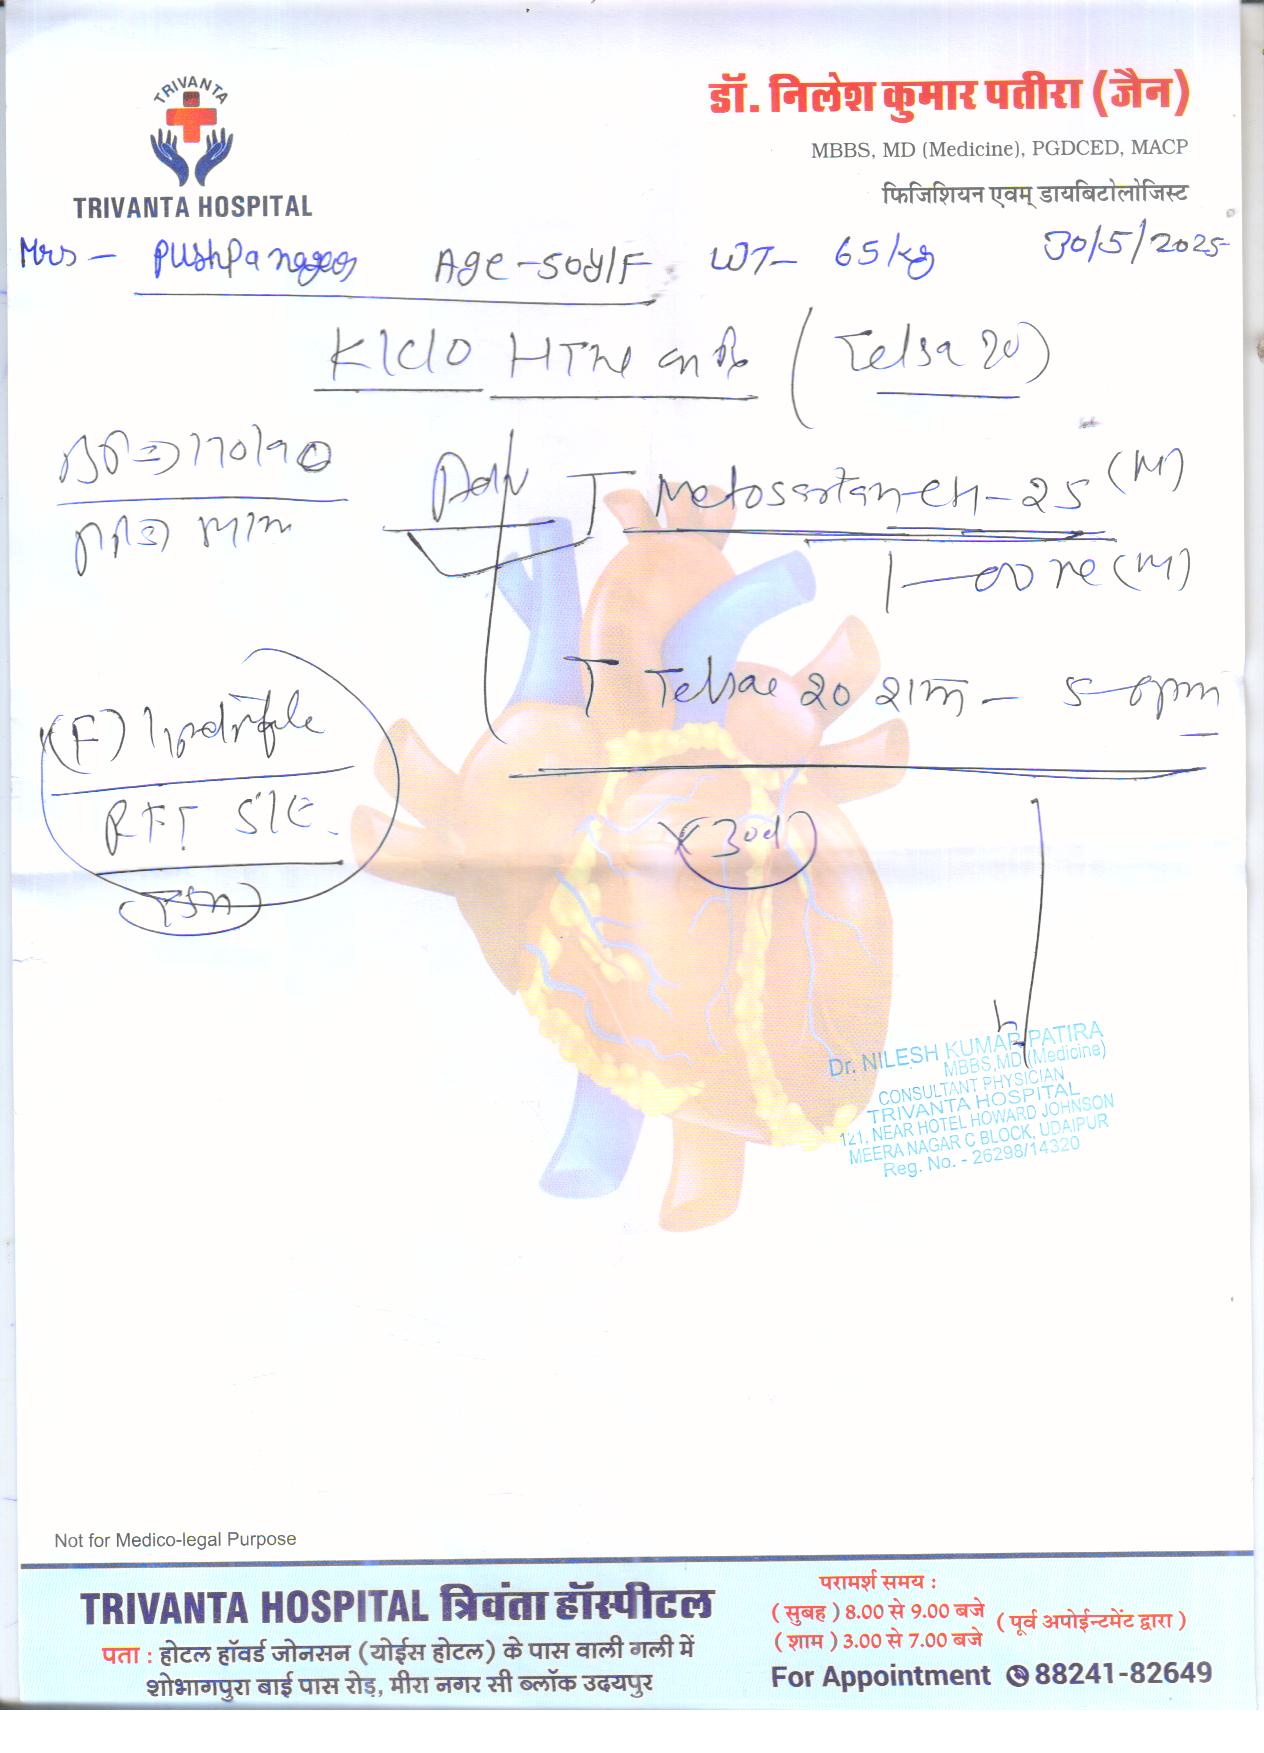 TRIVANTA
TRIVANTA HOSPITAL
डॉ. निलेश कुमार पतीरा (जैन)
MBBS, MD (Medicine), PGDCED, MACP
फिजिशियन एवम् डायबिटोलोजिस्ट
Mrs - Pushpa Age-50y/F WT- 65/kg 30/5/2025
K/C/O HTN on Rx (Telsa 20)
BP⇒170/90
Adv T Metosartan-CH-25 (M)
(M)
T 20 शाम - 5-6pm
(F) lipid profile
RFT S/E
x (30d)
Dr. NILESH KUMAR PATIRA
MBBS,MD (Medicine)
CONSULTANT PHYSICIAN
TRIVANTA HOSPITAL
121, NEAR HOTEL HOWARD JOHNSON
MEERA NAGAR C BLOCK, UDAIPUR
Reg. No. - 26298/14320
Not for Medico-legal Purpose
TRIVANTA HOSPITAL त्रिवंता हॉस्पीटल
पता : होटल हॉवर्ड जोनसन (योईस होटल) के पास वाली गली में
शोभागपुरा बाई पास रोड़, मीरा नगर सी ब्लॉक उदयपुर
परामर्श समय :
( सुबह ) 8.00 से 9.00 बजे
( शाम ) 3.00 से 7.00 बजे
( पूर्व अपोईन्टमेंट द्वारा )
For Appointment 88241-82649